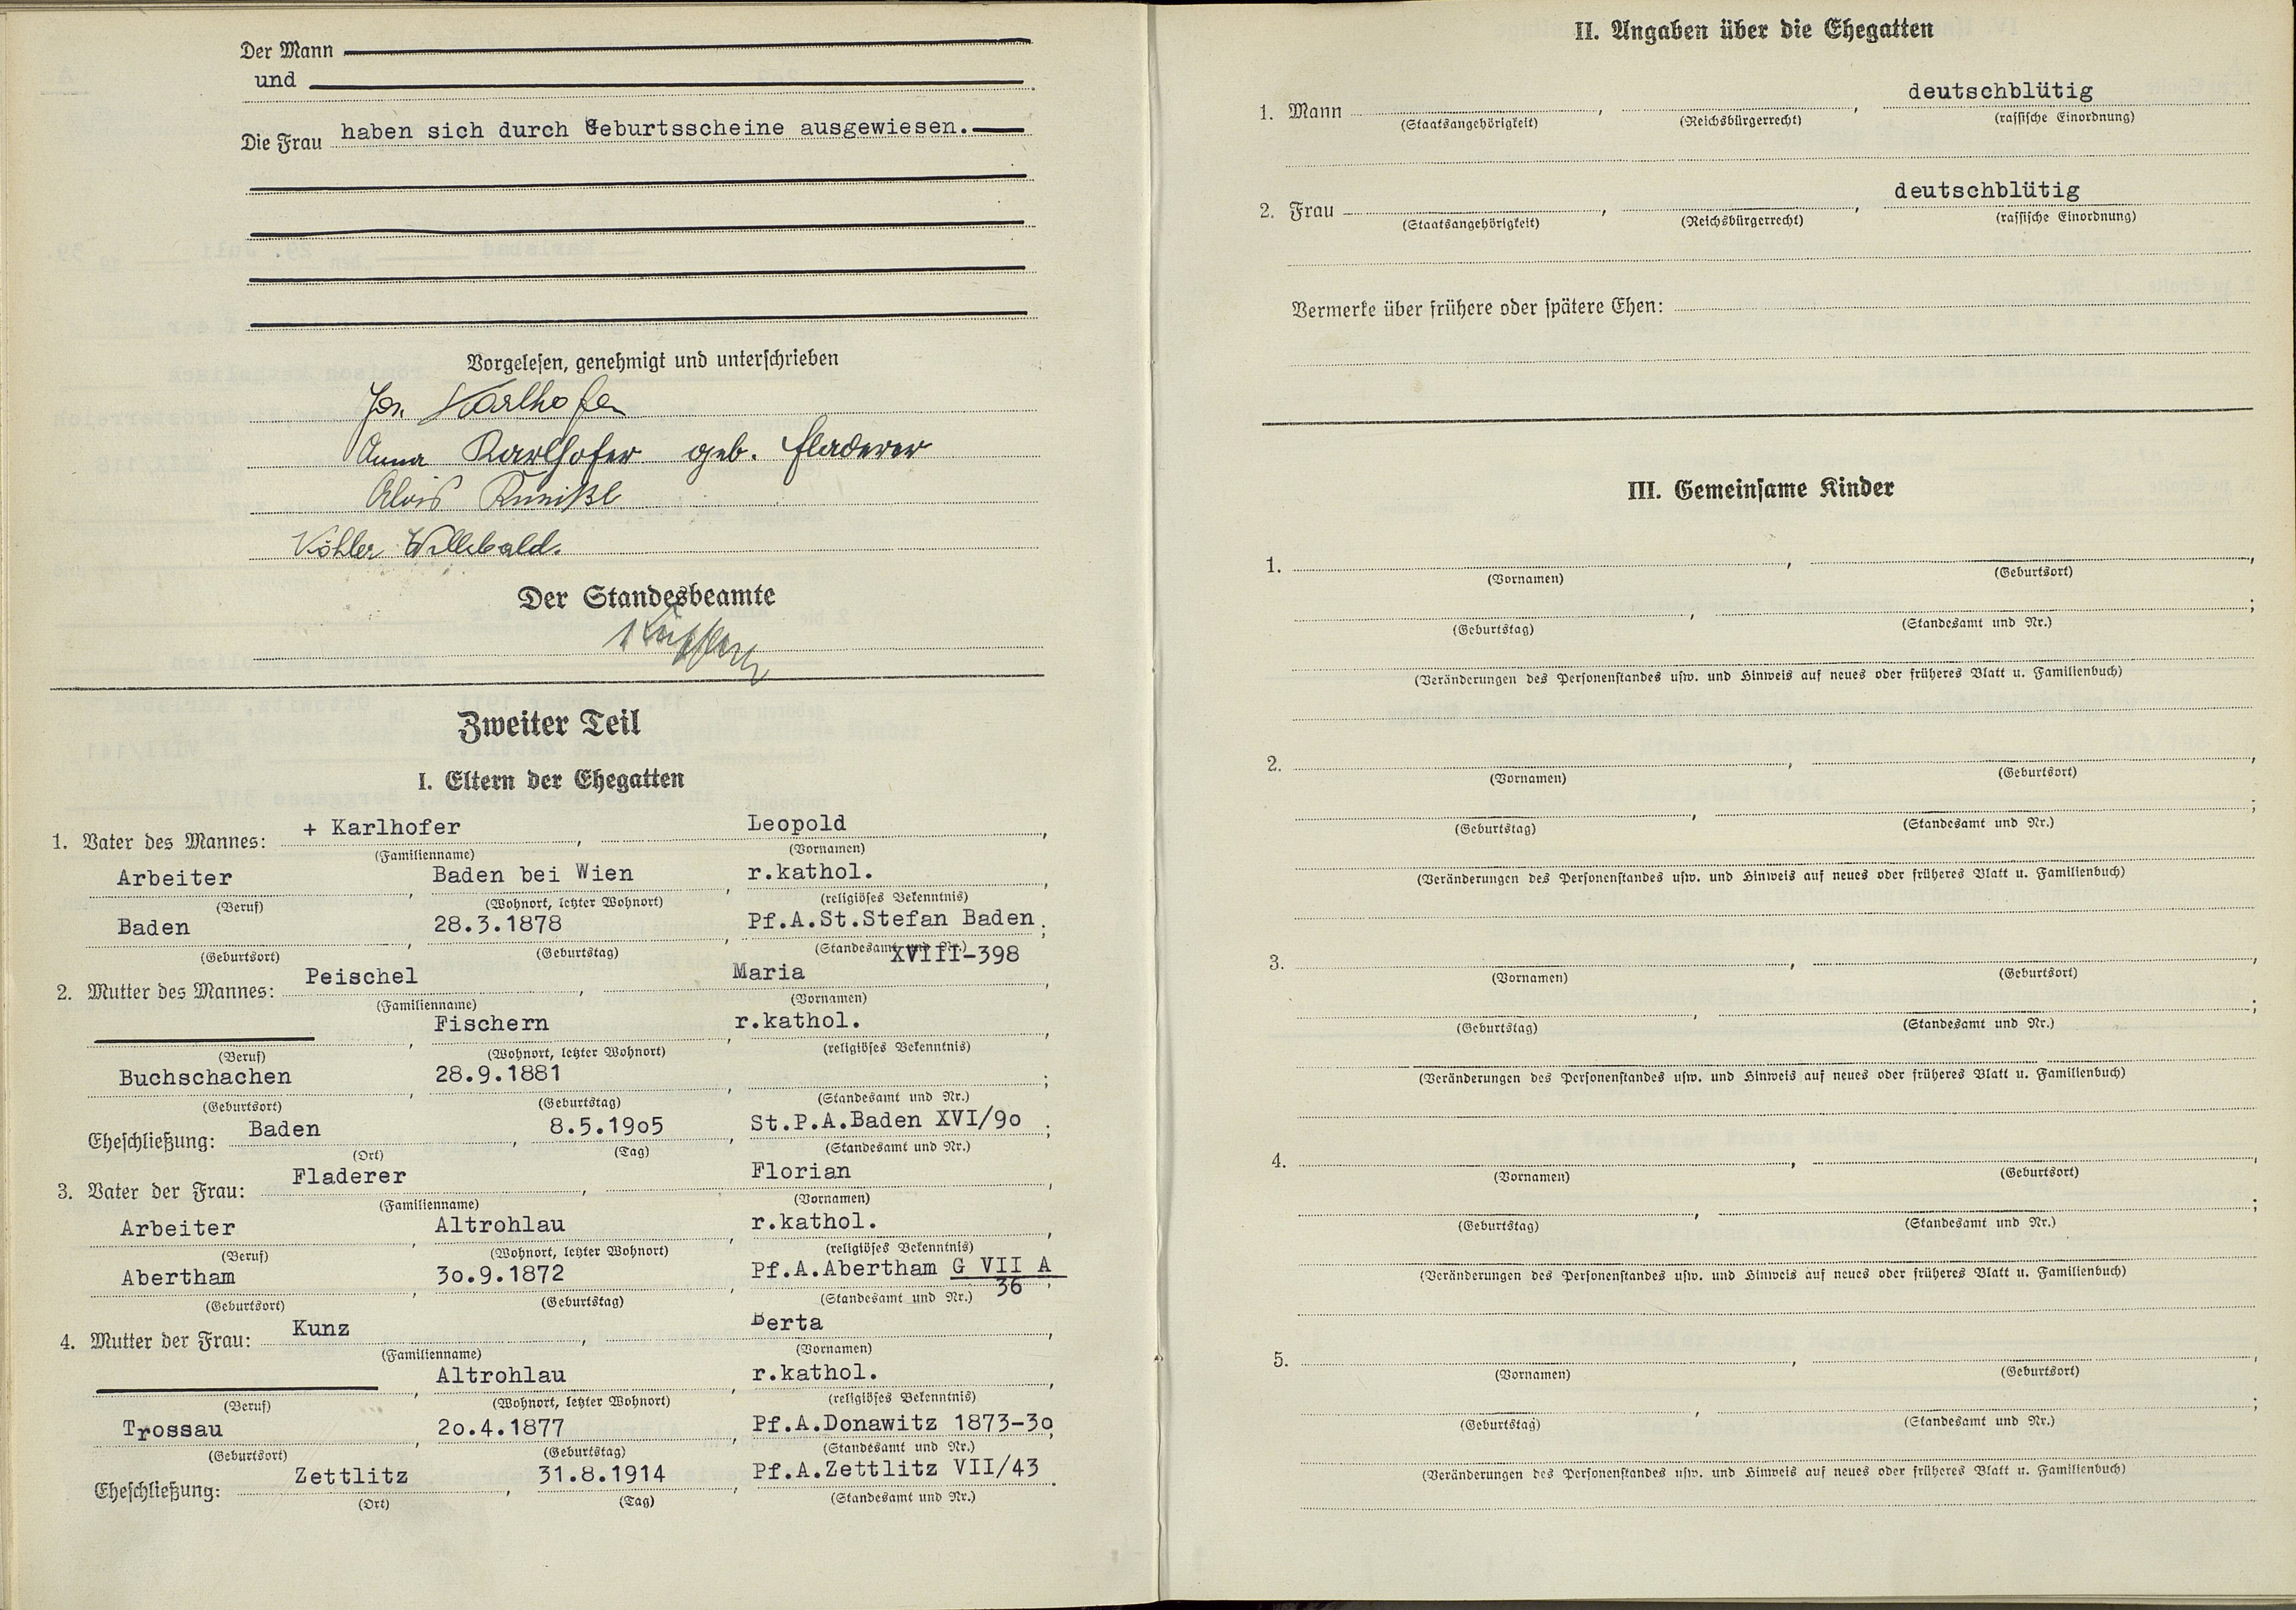 Der Mann
und
Die Frau haben sich durch Geburtsscheine ausgewiesen.
Vorgelesen, genehmigt und unterschrieben
Jos. Karlhofer
Anna Karlhofer geb. Fladerer
Alois
Köhler Willibald.
Der Standesbeamte
Zweiter Teil
I. Eltern der Ehegatten
1. Vater des Mannes: + Karlhofer, Leopold,
(Familienname) (Vornamen)
Arbeiter, Baden bei Wien, r.kathol.,
(Beruf) (Wohnort, letzter Wohnort) (religiöses Bekenntnis)
Baden, 28.3.1878, Pf.A.St.Stefan Baden;
(Geburtsort) (Geburtstag) (Standesamt und Nr.) XVIII-398
2. Mutter des Mannes: Peischel, Maria,
(Familienname) (Vornamen)
Fischern, r.kathol.,
(Beruf) (Wohnort, letzter Wohnort) (religiöses Bekenntnis)
Buchschachen, 28.9.1881, ;
(Geburtsort) (Geburtstag) (Standesamt und Nr.)
Eheschließung: Baden, 8.5.19o5, St.P.A.Baden XVI/9o;
(Ort) (Tag) (Standesamt und Nr.)
3. Vater der Frau: Fladerer, Florian,
(Familienname) (Vornamen)
Arbeiter, Altrohlau, r.kathol.,
(Beruf) (Wohnort, letzter Wohnort) (religiöses Bekenntnis)
Abertham, 3o.9.1872, Pf.A.Abertham G VII A
(Geburtsort) (Geburtstag) (Standesamt und Nr.) 36
4. Mutter der Frau: Kunz, Berta,
(Familienname) (Vornamen)
Altrohlau, r.kathol.,
(Beruf) (Wohnort, letzter Wohnort) (religiöses Bekenntnis)
Trossau, 2o.4.1877, Pf.A.Donawitz 1873-3o,
(Geburtsort) (Geburtstag) (Standesamt und Nr.)
Eheschließung: Zettlitz, 31.8.1914, Pf.A.Zettlitz VII/43.
(Ort) (Tag) (Standesamt und Nr.)
II. Angaben über die Ehegatten
1. Mann , , deutschblütig
(Staatsangehörigkeit) (Reichsbürgerrecht) (rassische Einordnung)
2. Frau , , deutschblütig
(Staatsangehörigkeit) (Reichsbürgerrecht) (rassische Einordnung)
Vermerke über frühere oder spätere Ehen:
III. Gemeinsame Kinder
1. , ,
(Vornamen) (Geburtsort)
, ;
(Geburtstag) (Standesamt und Nr.)
(Veränderungen des Personenstandes usw. und Hinweis auf neues oder früheres Blatt u. Familienbuch)
2. , ,
(Vornamen) (Geburtsort)
, ;
(Geburtstag) (Standesamt und Nr.)
(Veränderungen des Personenstandes usw. und Hinweis auf neues oder früheres Blatt u. Familienbuch)
3. , ,
(Vornamen) (Geburtsort)
, ;
(Geburtstag) (Standesamt und Nr.)
(Veränderungen des Personenstandes usw. und Hinweis auf neues oder früheres Blatt u. Familienbuch)
4. , ,
(Vornamen) (Geburtsort)
, ;
(Geburtstag) (Standesamt und Nr.)
(Veränderungen des Personenstandes usw. und Hinweis auf neues oder früheres Blatt u. Familienbuch)
5. , ,
(Vornamen) (Geburtsort)
, ;
(Geburtstag) (Standesamt und Nr.)
(Veränderungen des Personenstandes usw. und Hinweis auf neues oder früheres Blatt u. Familienbuch)